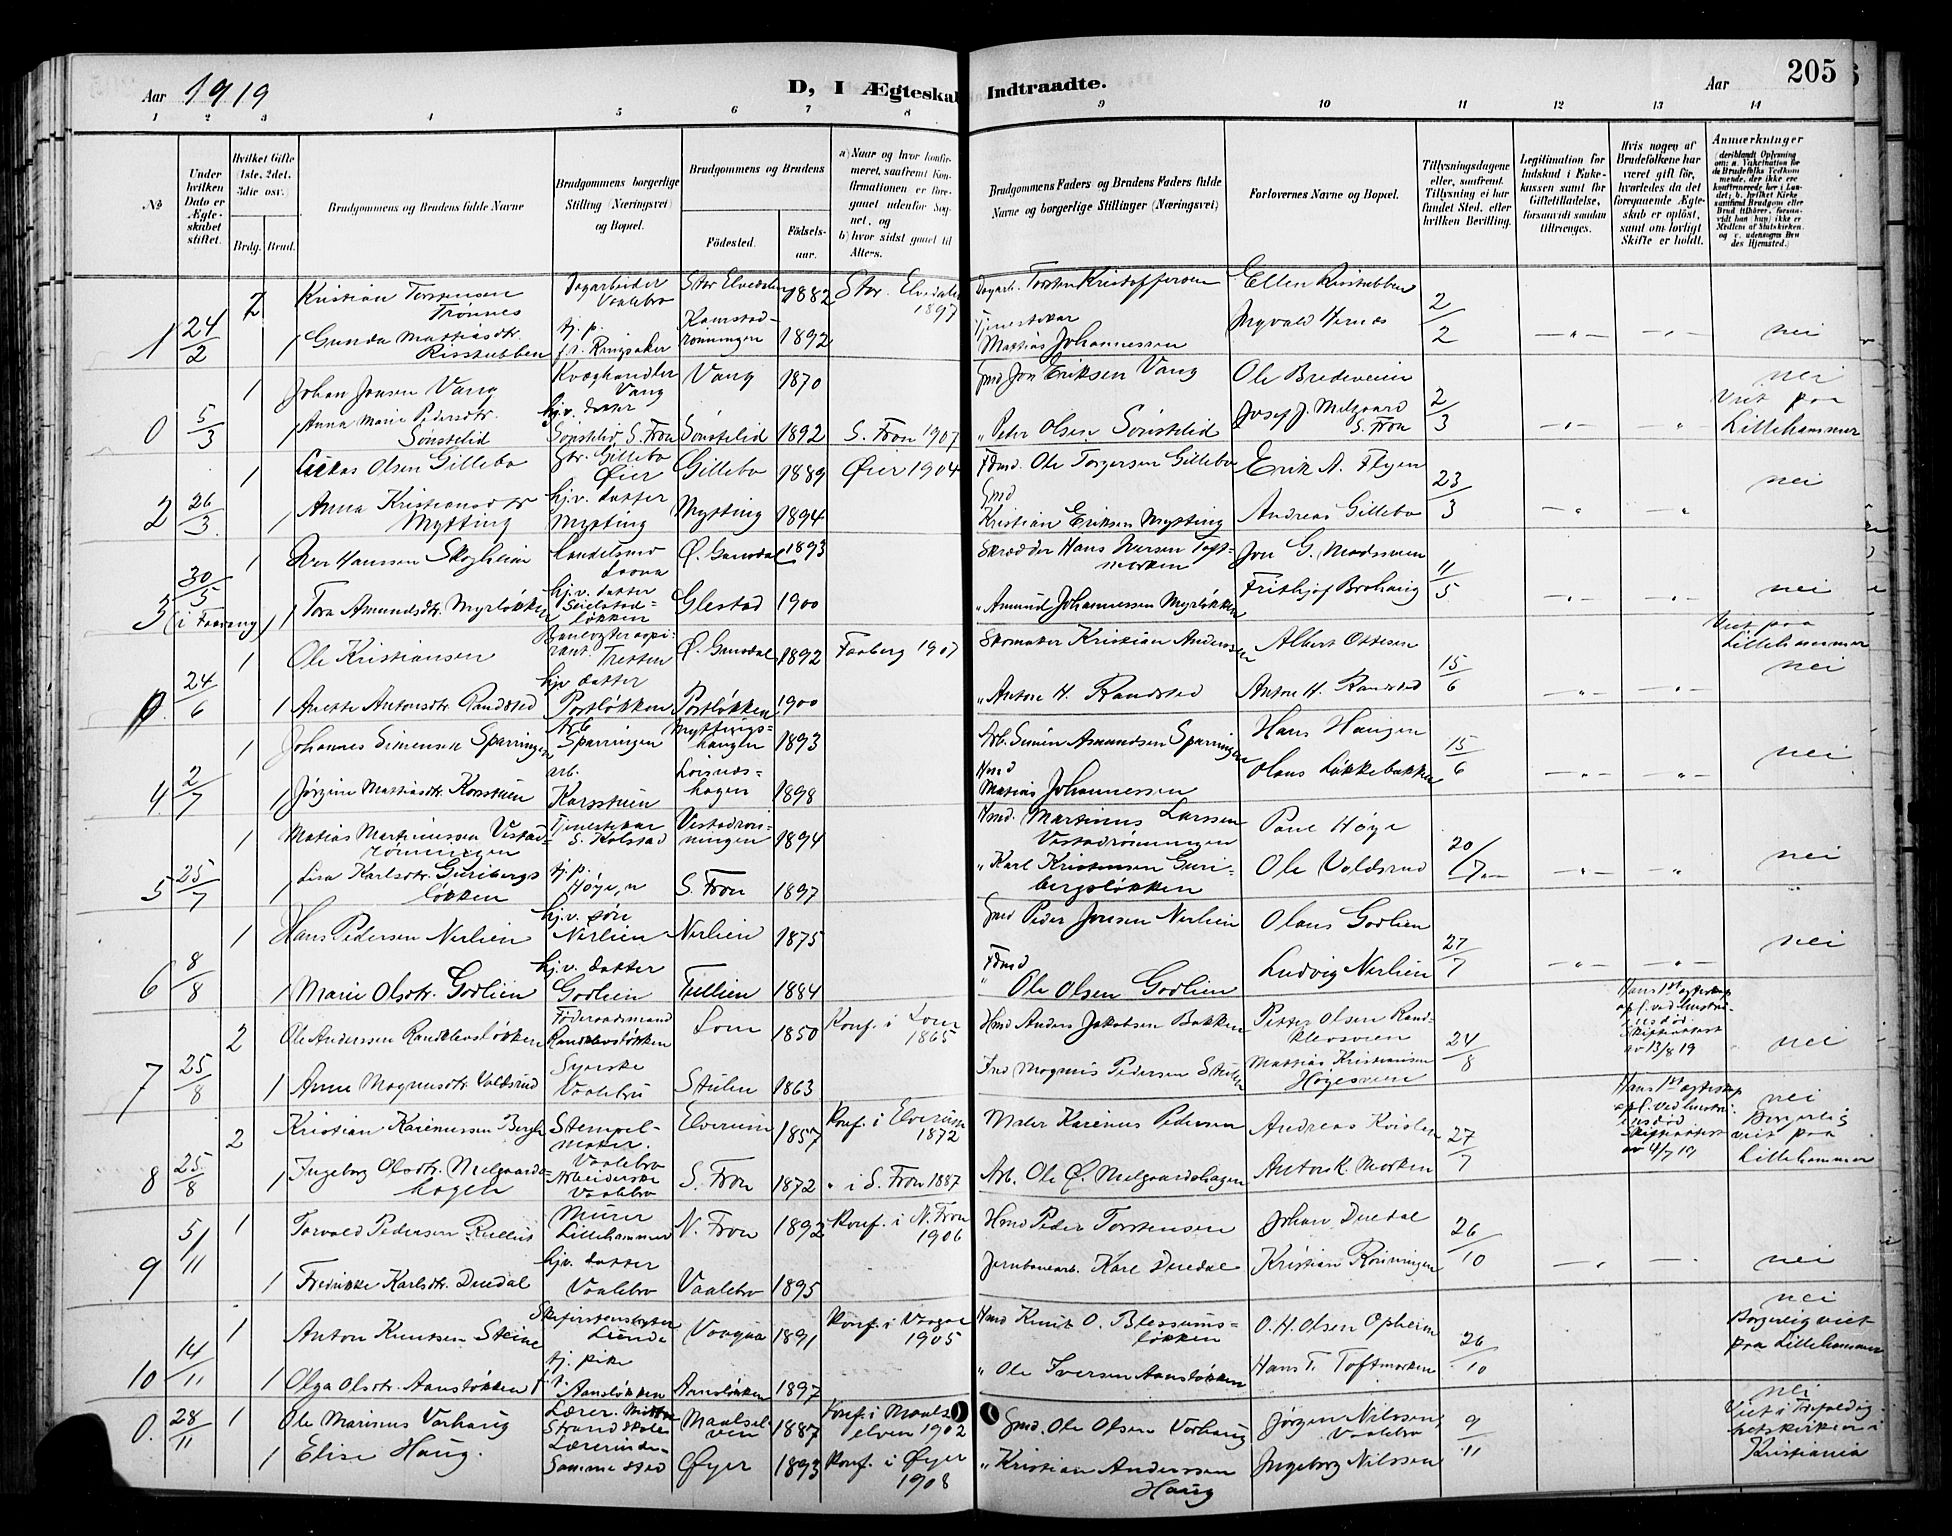 205
Aar 1919
D, I Ægteskab Indtraadte.
Aar
1 2 3 4 5 6 7 8 9 10 11 12 13 14
No
Under hvilken Dato er Ægteskabet stiftet.
Hvilket Gifte (1ste, 2det, 3die osv.)
Brdg. Brud.
Brudgommens og Brudens fulde Navne
Brudgommens borgerlige Stilling (Næringsvei) og Bopæl.
Brudgommens og Brudens
Fødested.
Fødsels-aar.
a) Naar og hvor konfirmeret, saafremt Konfirmationen er foregaaet udenfor Sognet, og
b) hvor sidst gaaet til Alters.
Brudgommens Faders og Brudens Faders fulde Navne og borgerlige Stillinger (Næringsvei)
Forlovernes Navne og Bopæl.
Tillysningsdagene eller, saafremt Tillysning ei har fundet Sted, efter hvilken Bevilling.
Legitimation for Indskud i Enkekassen samt for Giftetilladelse, forsaavidt saadan tiltrænges.
Hvis nogen af Brudefolkene har været gift før, hvorledes da det foregaaende Ægteskab er opløst, samt om lovligt Skifte er holdt.
Anmærkninger
1 24/2 2 Kristian Torstensen Trønnes Dagarbeider Vaalebro Stor Elvedalen 1882 Stor. Elvedalen 1897 Dagarb. Torsten Kristoffersen Ellen Risstubben 2/2
1 Gunda Mattiasdtr. Risstubben tj. p. f. t. Ringsaker Kamstadrønningen 1892 Tjenestekar Mattias Johannessen Ingvald Hernes nei
0 5/3 1 Johan Jonsen Vang Kvæghandler Vang Vang 1870 Gmd Jon Eriksen Vang Ole Bredeveien 2/3 nei
1 Anna Marie Pedersdtr. Sønstelid hj.v. datter Sønstelid S. Fron Sønstelid 1892 S. Fron 1907 " Peder Olsen Sønstelid Josef J. Melgaard S. Fron Viet paa Lillehammer
2 26/3 1 Lukas Olsen Gillebo Gbr. Gillebo Øier Gillebo 1889 Øier 1904 Fdmd. Ole Torgersen Gillebo Erik A. Flyen 23/3 nei
1 Anna Kristiansdtr Mytting hj.v. datter Mytting Mytting 1894 Gmd Kristian Eriksen Mytting Andreas Gillebo
3 30/5 (i Faavang) 1 Iver Hanssen Skogheim Handelsmd Ø. Gausdal 1893 Skrædder Hans Iversen Toftmorken Jon G. Madssveen 11/5
1 Tora Amundsdtr. Myrløkken hj.v. datter Seielstadløkken Glestad 1900 " Amund Johannessen Myrløkken Frithjof Brohaug nei
0. 24/6 1 Ole Kristiansen Tretten Ø. Gausdal 1892 Faaberg 1907 Skomaker Kristian Anderssen Albert Ottesen 15/6 Viet paa Lillehammer nei
1 Anette Antonsdtr Randstad hjv datter Postløkken Postløkken 1900 " Anton H. Randstad Anton H. Randstad
4. 2/7 1 Johannes Simensen Sparringen Arb Sparringen Myttingshaugen 1893 Arb. Simen Asmundsen Sparringen Hans Haugen 15/6 nei
1 Jørgine Mattiasdtr. Korsstuen arb. Korsstuen 1898 Hmd Matias Johannessen Olaus Løkkebakken
5 25/7 1 Matias Martinussen Vestadrønningen Tjenestekar S. Kolstad Vestadrønningen 1894 Hmd. Martinus Larssen Vestadrønningen Paul Høye 20/7 nei
1 Lisa Karlsdtr. Guribergsløkken tj. p. Høye, n S. Fron 1897 " Karl Kristensen Guribergsløkken Ole Voldsrud
6 8/8 1 Hans Pedersen Nerlien hj.v. søn Nerlien Nerlien 1875 Gmd Peder Jonsen Nerlien Olaus Godlien 27/7 nei
1 Marie Olsdtr. Godlien hj.v. datter Godlien Tullien 1884 Fdmd Ole Olsen Godlien Ludvig Nerlien
7 25/8 2 Ole Anderssen Randklevsløkken Føderaadsmand Randklevsløkken Lom 1850 Konf. i Lom 1865 Hmd Anders Jakobsen Bakken Petter Olsen Randklevsveen 24/8 Hans 1ste egteskap opl. ved hustruens død. Skifteattest av 13/8 19 nei
1 Anne Magnusdtr. Voldsrud Syerske Vaalebro Stulen 1863 Magnus Pedersen Stulen Mattias Kristiansen Høgesveen
8 25/8 2 Kristian Karenussen Bergh Stempelmaker. Vaalebro Elverum 1857 Konf. i Elverum 1872 Maler Karenus Pedersen Andreas Kvislen 27/7 Hans 1ste egteskap opl. ved hustruens død Skifteattest av 4/7 19 nei Borgerlig viet paa Lillehammer
1 Ingeborg Olsdtr. Melgaardshagen Arbeiderske Vaalebro S. Fron 1872 " i S. Fron 1887 Arb. Ole Ø. Melgaardshagen Anton K. Morken
9 5/11 1 Torvald Pedersen Rullus Murer Lillehammer N. Fron 1892 Konf. i N. Fron 1906 Hmd Peder Torstensen Johan Duedal 26/10
1 Fredrikke Karlsdtr. Duedal hj.v. datter Vaalebro Vaalebro 1895 Jernbanearb. Karl Duedal Kristian Rønningen nei
10 14/11 1 Anton Knutsen Steine Lunde Vaagaa 1891 Konf. i Vaagaa 1905 Hmd Knut O. Blessumsløkken O. H. Olsen Opheim 26/10 nei Borgerlig viet paa Lillehammer
1 Olga Olsdtr. Aansløkken tj. pike Aansløkken Aansløkken 1897 " Ole Iversen Aansløkken Hans T. Toftmorken
0. 28/11 1 Ole Marinus Vorhaug Lærer. Strand skole Maalselven 1887 Konf. i Maalselven 1902 Gmd. Ole Olsen Vorhaug Jørgen Nilssen Vaalebro 9/11 nei Viet i Trefoldighetskirken i Kristiania
1 Elise Haug. Lærerinde Sommerstad Øyer 1893 Konf. i Øyer 1908 " Kristian Anderssen Haug Ingeborg Nilssen